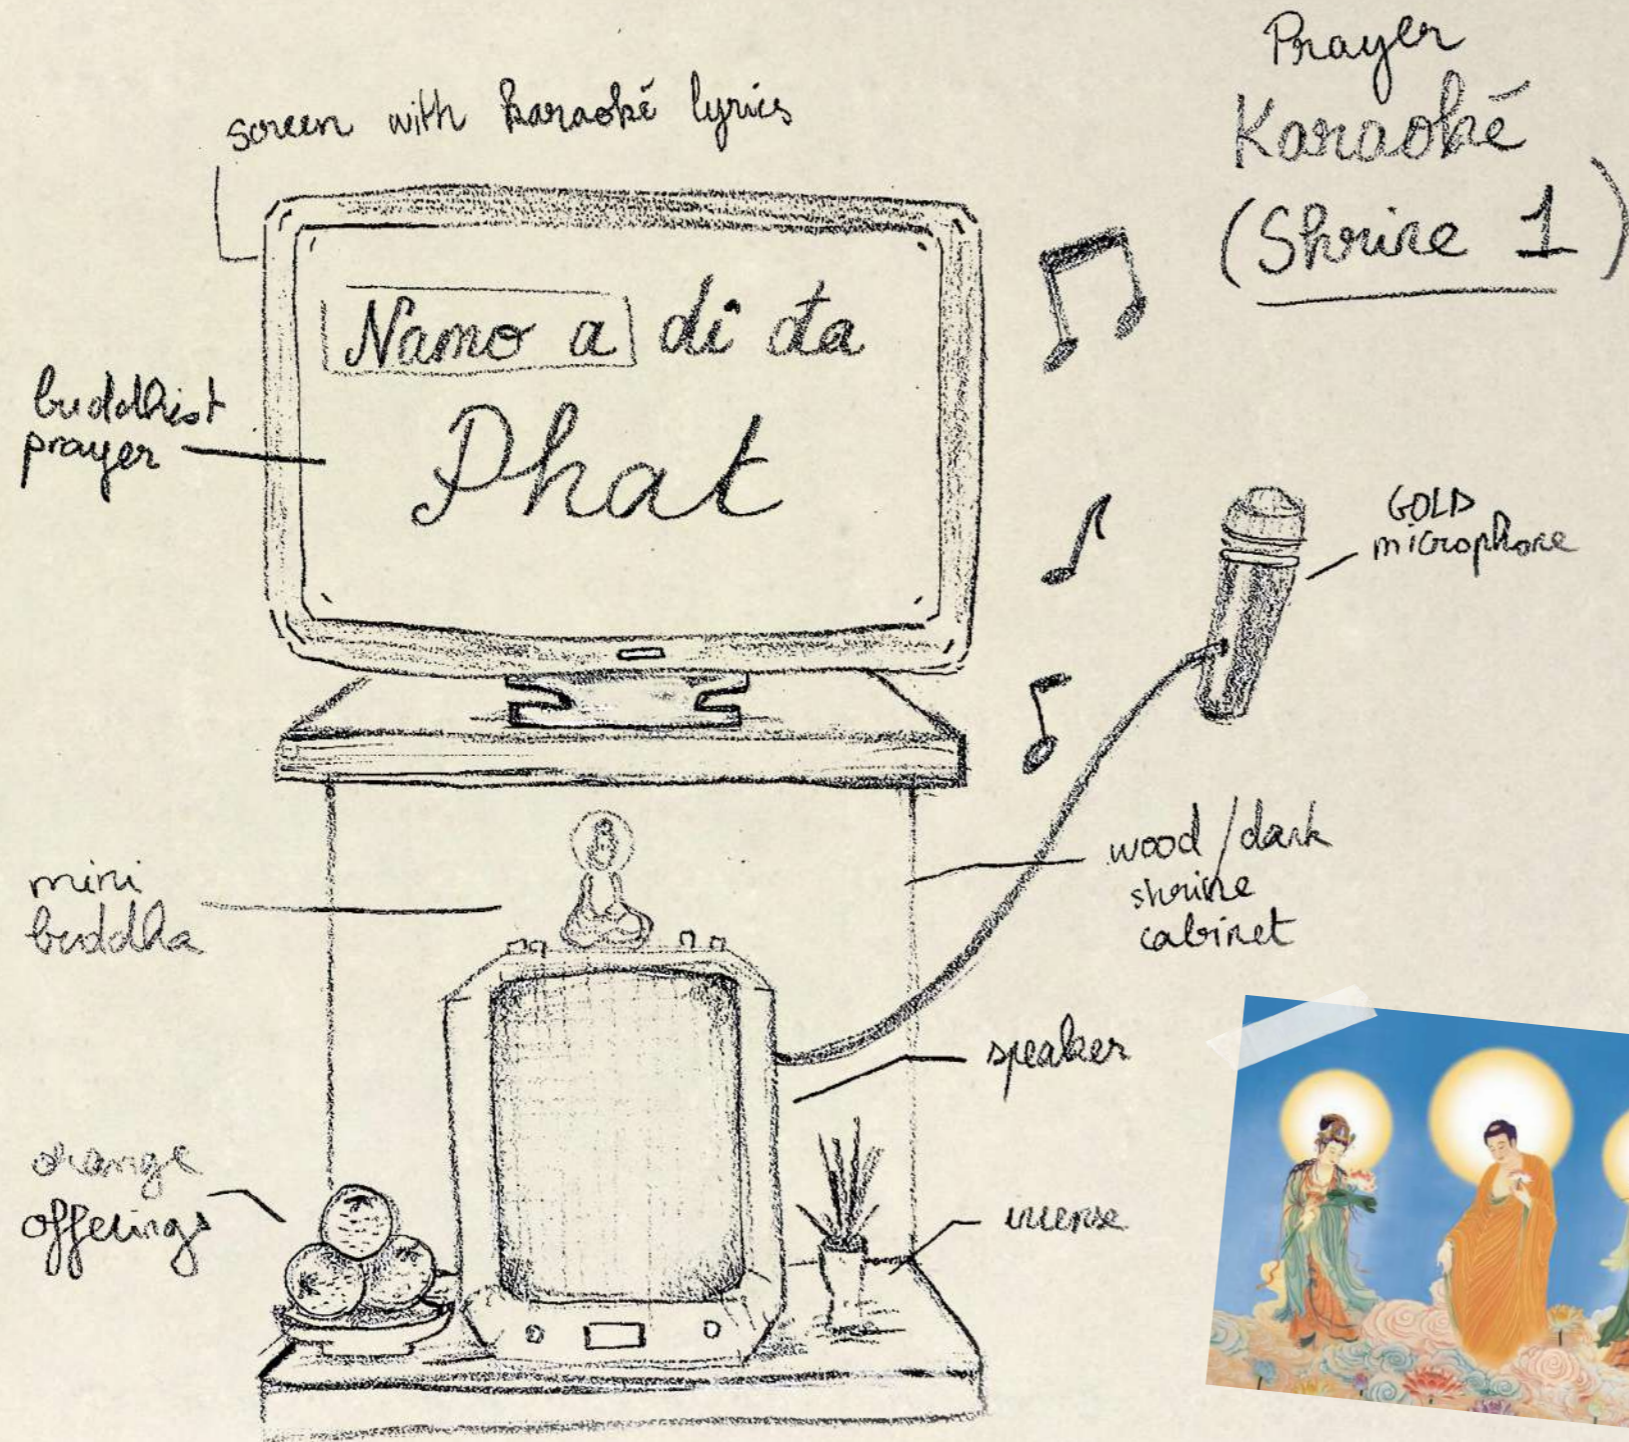 Prayer
Karaoké
(Shrine 1)
screen with karaoké lyrics
Namo a di đa
Phat
buddhist
prayer
GOLD
microphone
wood/dark
shrine
cabinet
mini
buddha
speaker
orange
offerings
incense